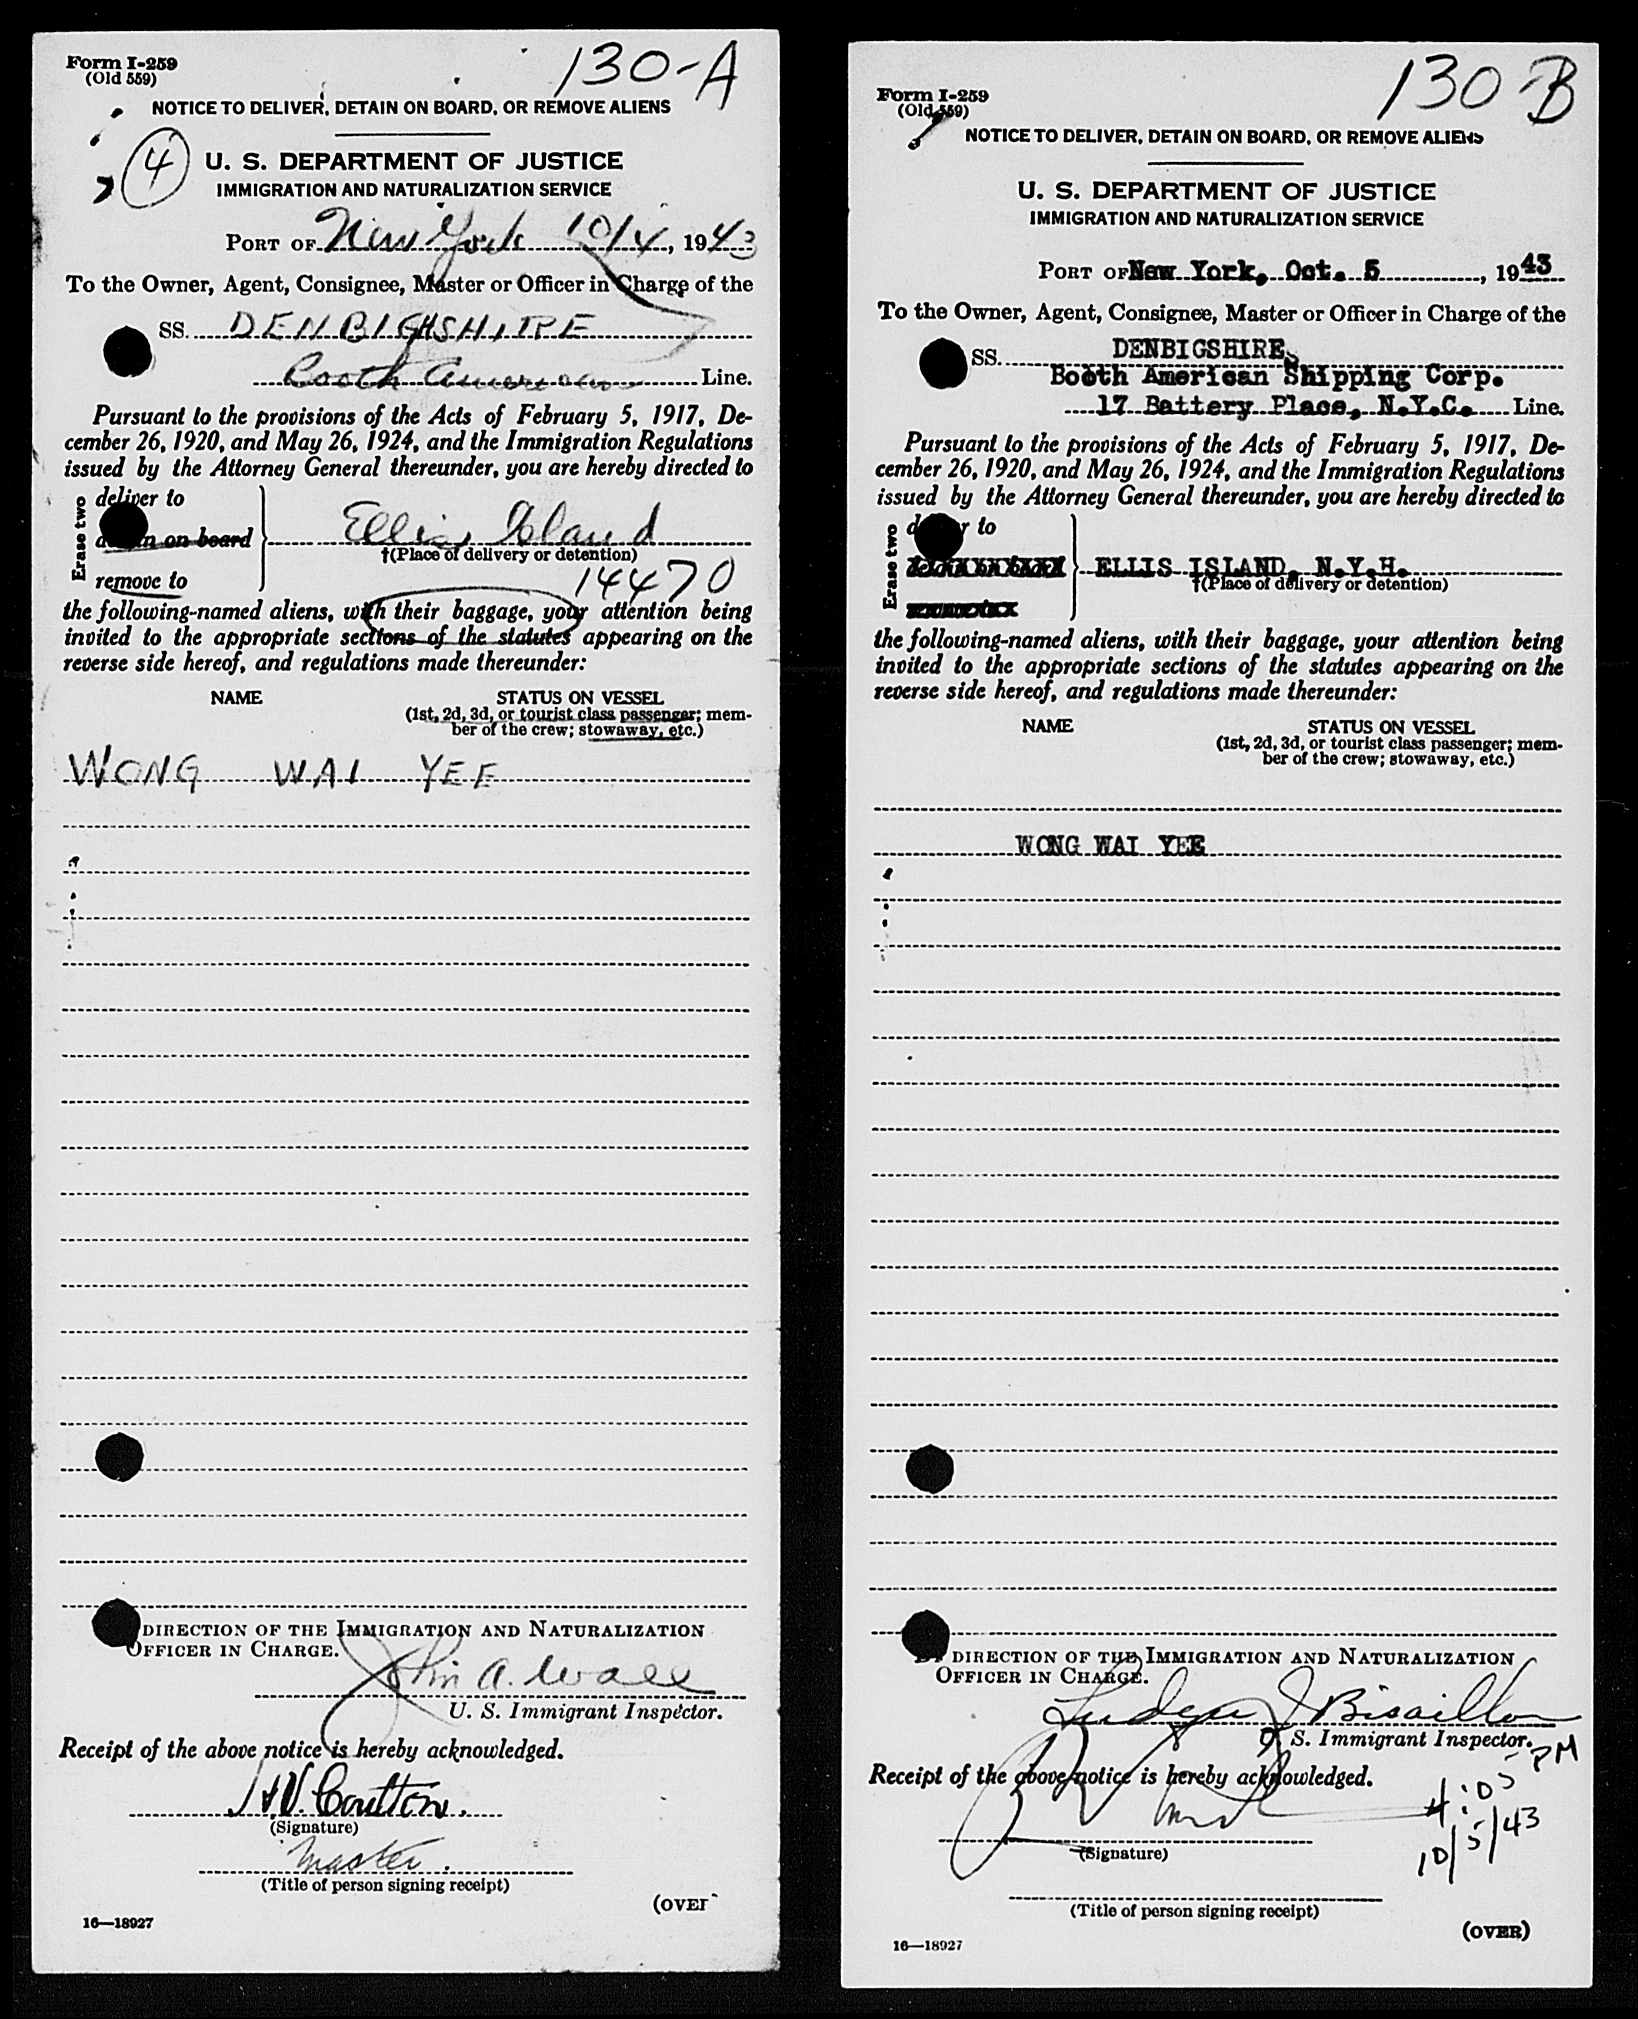 Form I-259
(Old 559)
130-A
NOTICE TO DELIVER, DETAIN ON BOARD, OR REMOVE ALIENS
4
U. S. DEPARTMENT OF JUSTICE
IMMIGRATION AND NATURALIZATION SERVICE
PORT OF New York 10/4, 1943
To the Owner, Agent, Consignee, Master or Officer in Charge of the
SS. DENBIGHSHIRE
Booth American Line.
Pursuant to the provisions of the Acts of February 5, 1917, De-
cember 26, 1920, and May 26, 1924, and the Immigration Regulations
issued by the Attorney General thereunder, you are hereby directed to
Erase two
deliver to
on board
remove to
Ellis Island
†(Place of delivery or detention)
14470
the following-named aliens, with their baggage, your attention being
invited to the appropriate sections of the statutes appearing on the
reverse side hereof, and regulations made thereunder:
NAME STATUS ON VESSEL
(1st, 2d, 3d, or tourist class passenger; mem-
ber of the crew; stowaway, etc.)
WONG WAI YEE
DIRECTION OF THE IMMIGRATION AND NATURALIZATION
OFFICER IN CHARGE.
John A. Wall
U. S. Immigrant Inspector.
Receipt of the above notice is hereby acknowledged.
Coulton.
(Signature)
Master.
(Title of person signing receipt)
(OVER
16—18927
Form I-259
(Old 559)
130-B
NOTICE TO DELIVER, DETAIN ON BOARD, OR REMOVE ALIENS
U. S. DEPARTMENT OF JUSTICE
IMMIGRATION AND NATURALIZATION SERVICE
PORT OF New York, Oct. 5, 1943
To the Owner, Agent, Consignee, Master or Officer in Charge of the
SS. DENBIGSHIRE,
Booth American Shipping Corp.
17 Battery Place, N.Y.C. Line.
Pursuant to the provisions of the Acts of February 5, 1917, De-
cember 26, 1920, and May 26, 1924, and the Immigration Regulations
issued by the Attorney General thereunder, you are hereby directed to
Erase two
to
ELLIS ISLAND, N.Y.H.
†(Place of delivery or detention)
the following-named aliens, with their baggage, your attention being
invited to the appropriate sections of the statutes appearing on the
reverse side hereof, and regulations made thereunder:
NAME STATUS ON VESSEL
(1st, 2d, 3d, or tourist class passenger; mem-
ber of the crew; stowaway, etc.)
WONG WAI YEE
DIRECTION OF THE IMMIGRATION AND NATURALIZATION
OFFICER IN CHARGE.
J Bisaillon
S. Immigrant Inspector.
Receipt of the above notice is hereby acknowledged.
4:05 PM
10/5/43
(Signature)
(Title of person signing receipt)
(OVER)
16—18927